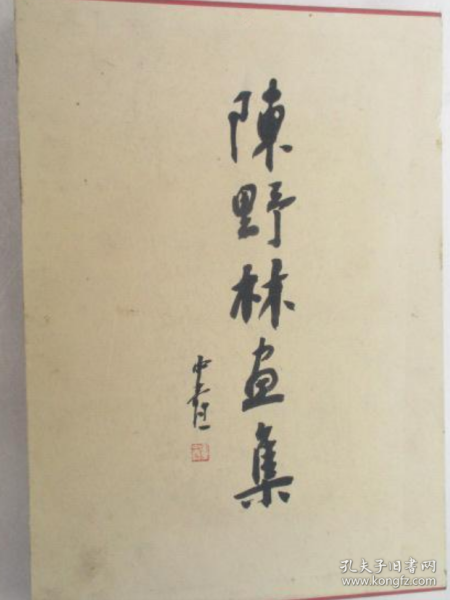 陳野林画集
孔夫子旧书网
www.kongfz.com